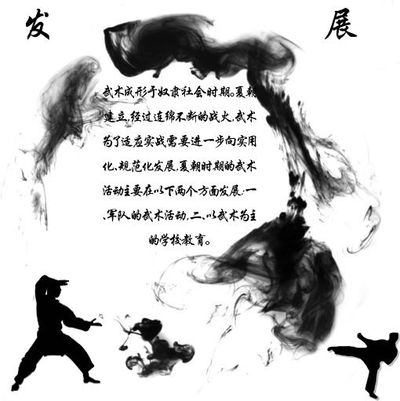 发展
武术成形于奴隶社会时期。夏朝
建立,经过连绵不断的战火,武术
为了适应实战需要进一步向实用
化、规范化发展,夏朝时期的武术
活动主要在以下两个方面发展:一
、军队的武术活动,二、以武术为主
的学校教育。